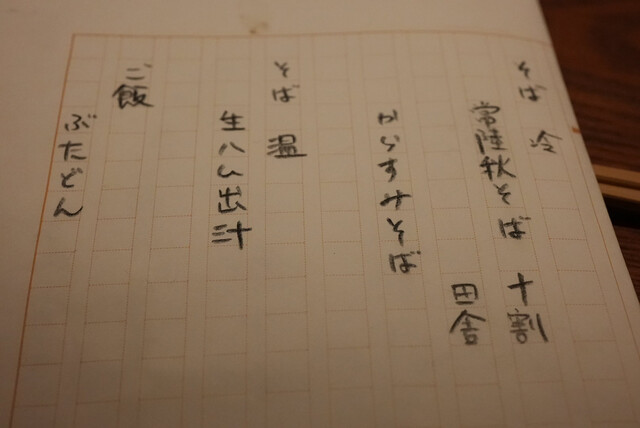 そば 冷
常陸秋そば 十割
田舎
からすみそば
そば 温
生ハム出汁
ご飯
ぶたどん